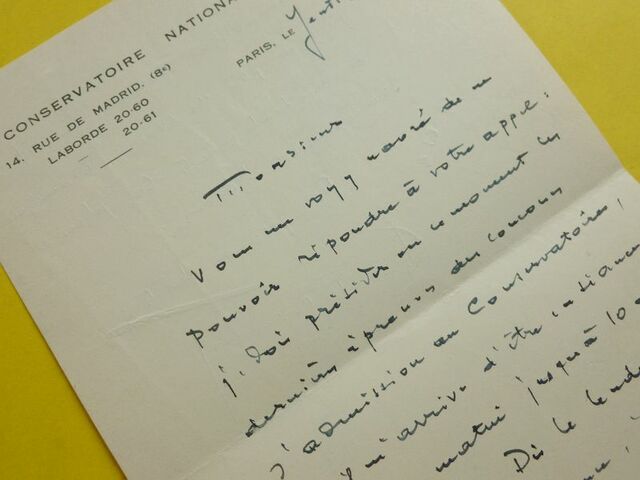 CONSERVATOIRE NATIONA
14, RUE DE MADRID. (8e)
LABORDE 20-60
- 20-61
PARIS, LE
Monsieur
Vous me voyez navré de ne
pouvoir répondre à votre appel:
je dois présider en ce moment les
dernières épreuves du concours
d'admission au Conservatoire,
il m'arrive d'être en séance
matin jusqu'à 10
Dès le lende